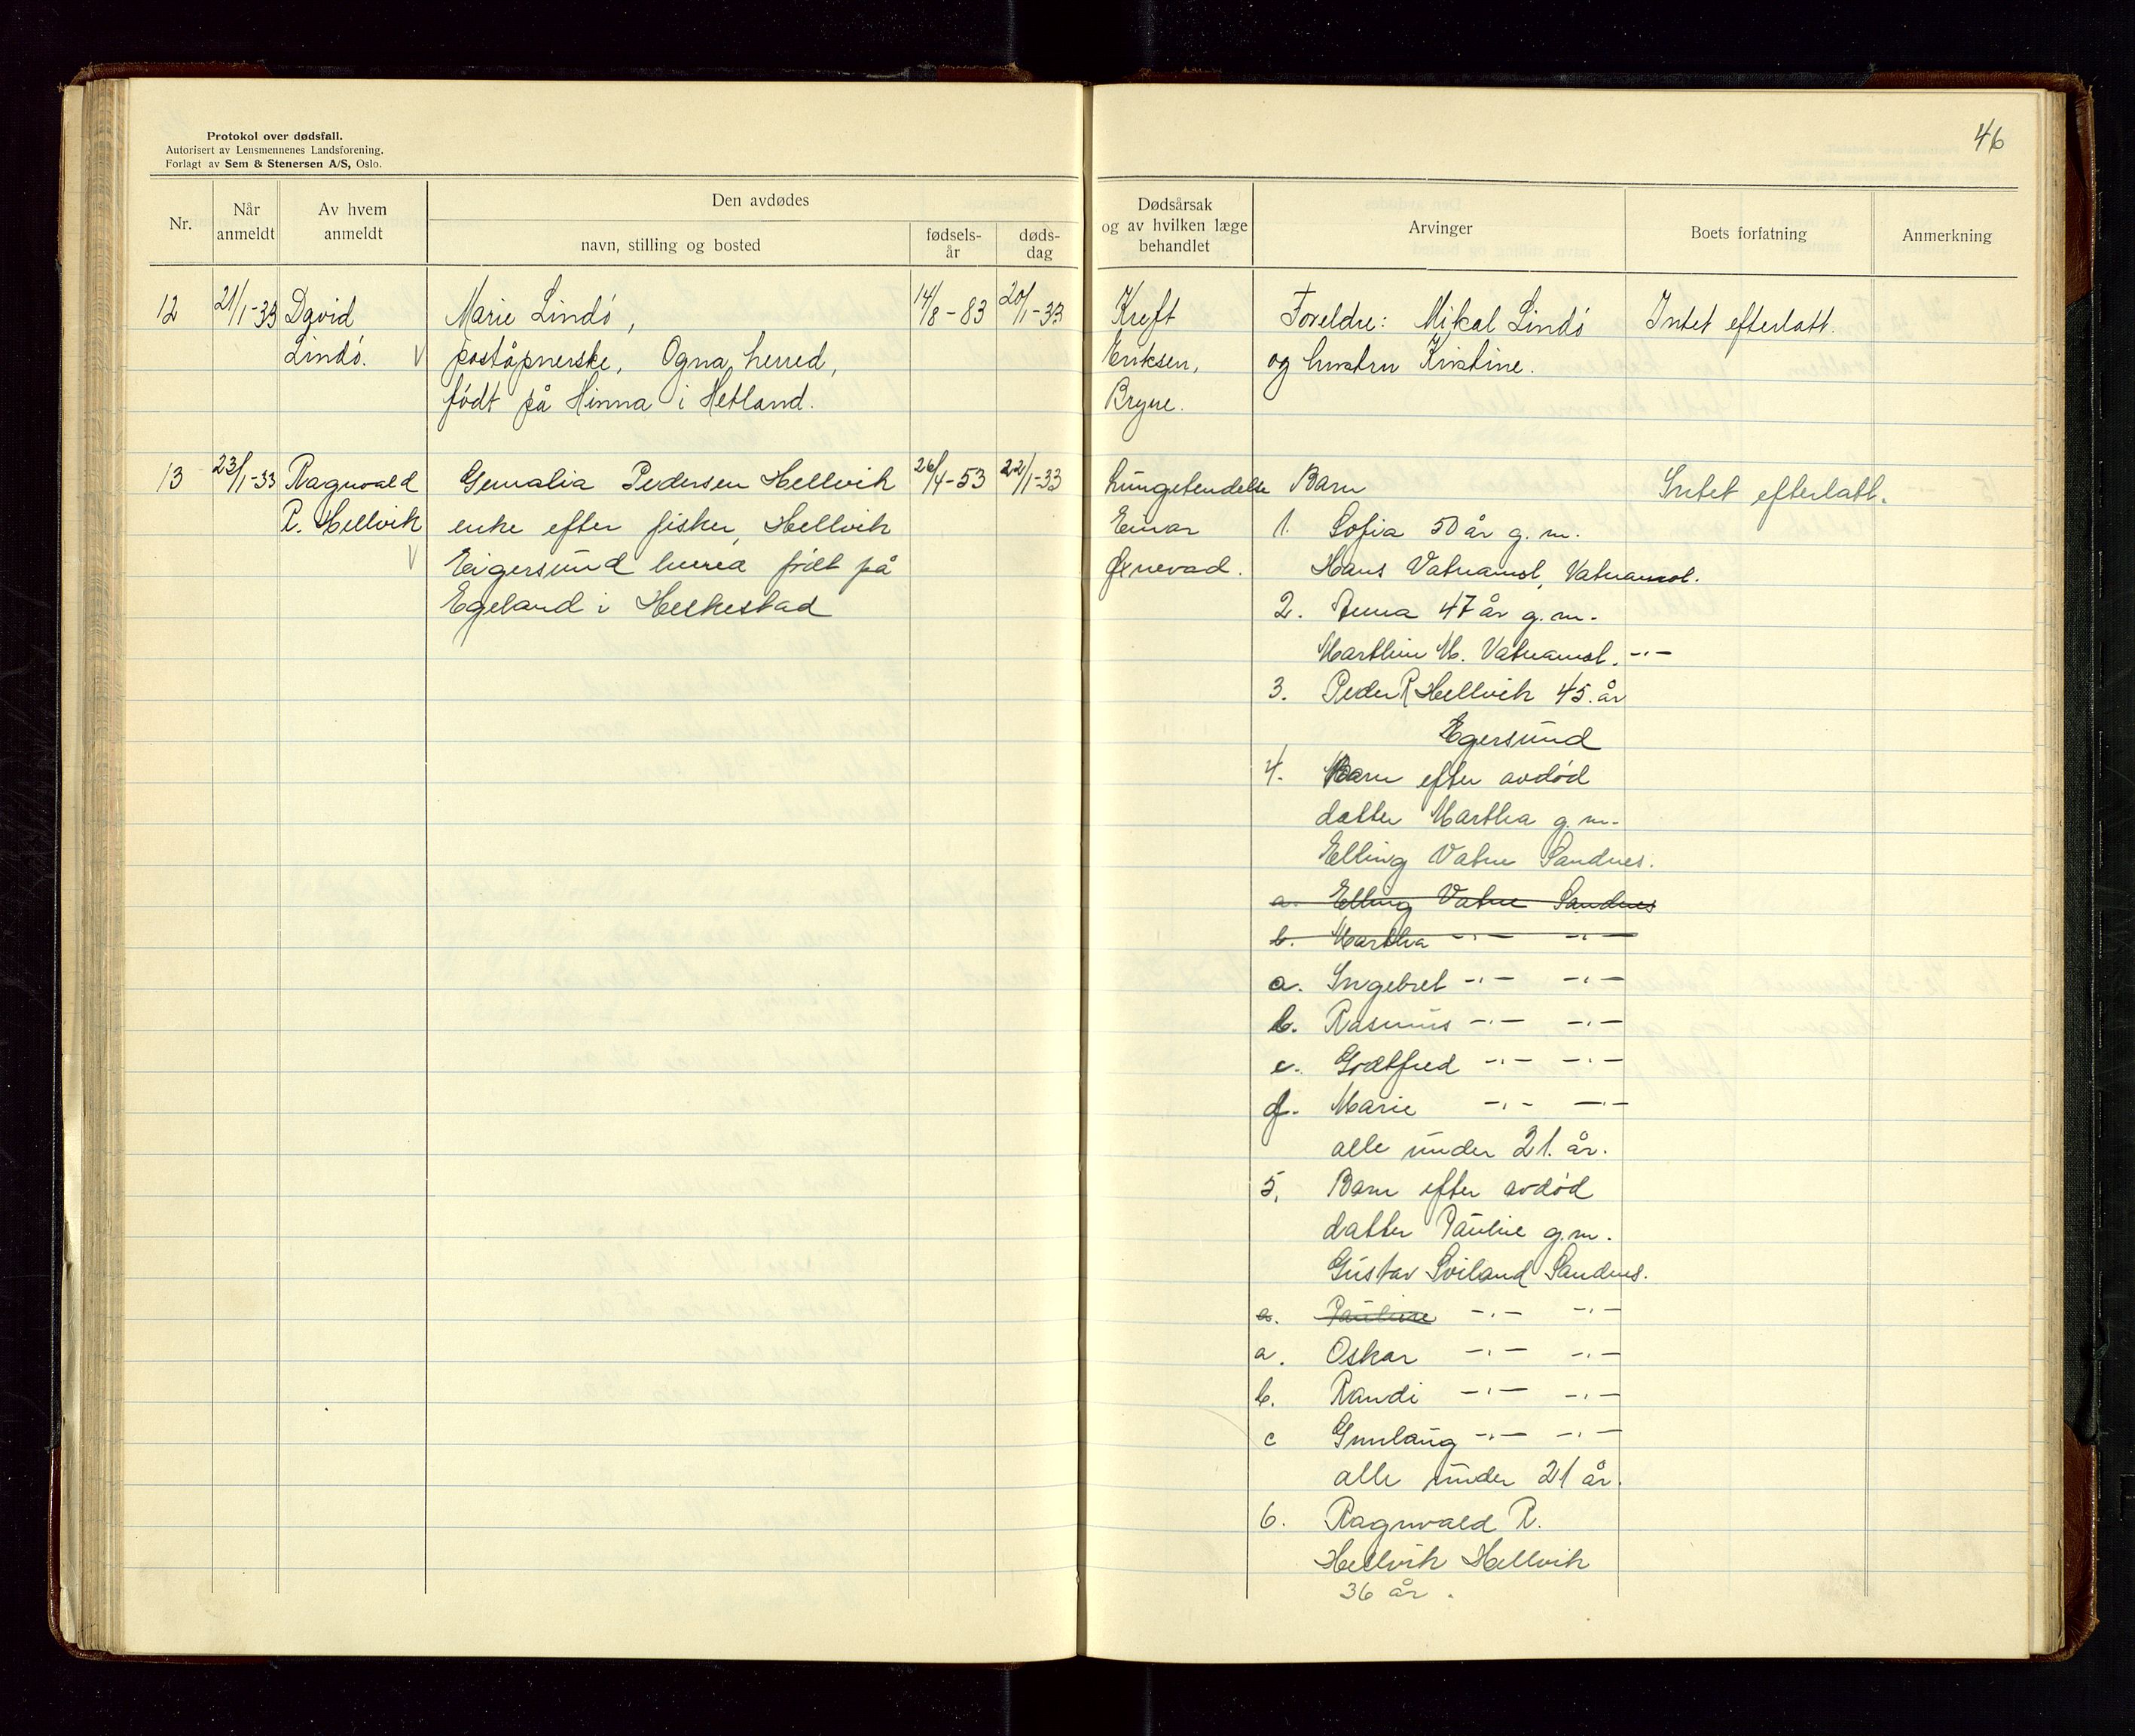 Protokol over dødsfall.
Autorisert av Lensmennenes Landsforening.
Forlagt av Sem & Stenersen A/S, Oslo.
Nr.
Når anmeldt
Av hvem anmeldt
Den avdødes
navn, stilling og bosted
fødsels-år
døds-dag
12 21/1-33 David Marie Lindö, 14/8-83 20/1-33
Lindö. V poståpnerske, Ogna herred,
födt på Hinna i Hetland.
13 23/1-33 Ragnvald Pedersen Hellvik 26/4-53 22/1-33
R. Hellvik enke efter fisker, Hellvik
V Eigersund herred födt på
Egeland i Heskestad
46
Dødsårsak
og av hvilken læge
behandlet
Arvinger
Boets forfatning
Anmerkning
Kreft Foreldre: Mikal Lindö Intet efterlatt.
Eriksen, og hustru Kristine.
Bryne.
Lungebetendelse Barn Intet efterlatt.
Einar 1. Sofia 50 år g. m.
Hans Vatnamot, Vatnamot.
2. Anna 47 år g. m.
Marthin M. Vatnamot. -"-
3. Peder R Hellvik 45. år
Egersund
4. Barn efter avdöd
datter Martha g. m.
Elling Vatne Sandnes.
a. Elling Vatne Sandnes
b. Martha -"- -"-
a. Ingebret -"- -"-
b. Rasmus -"- -"-
c. Godtfred -"- -"-
d. Marie -"- -"-
alle under 21. år.
5. Barn efter avdöd
datter Pauline g. m.
Gustav Sviland Sandnes.
a. Pauline -"- -"-
a. Oskar -"- -"-
b. Randi -"- -"-
c Gunlaug -"- -"-
alle under 21 år.
6. Ragnvald R.
Hellvik Hellvik
36 år.